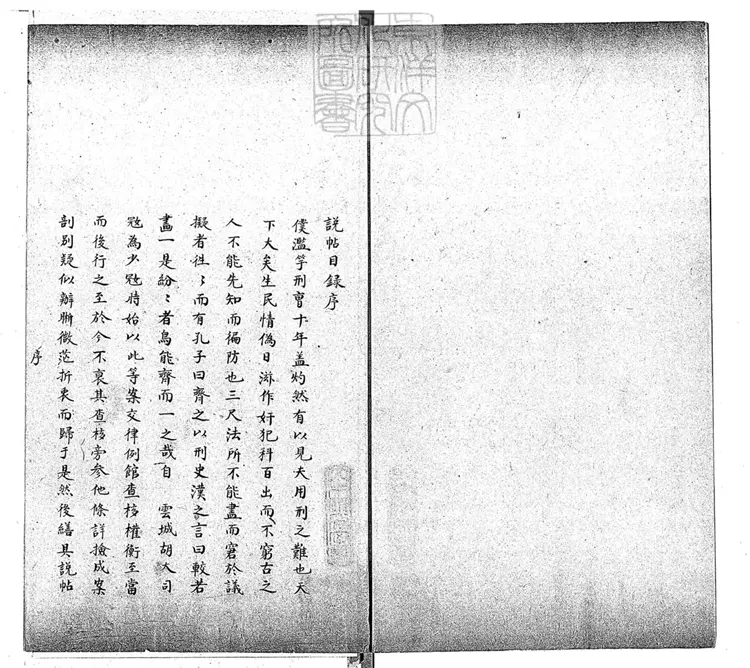 説帖目録序
僕濫竽刑曹十年蓋灼然有以見夫用刑之難也天
下大矣生民情偽日滋作奸犯科百出而不窮古之
人不能先知而徧防也三尺法所不能盡而窘於議
擬者徃〻而有孔子曰齊之以刑史漢之言曰較若
畫一是紛〻者烏能齊而一之哉自 雲城胡大司
宼為少宼時始以此等案交律例館查核權衡至當
而後行之至於今不衰其查核旁参他條詳撿成案
剖別疑似辦晰微茫折衷而歸于是然後繕具說帖
序
東洋文
化研究
所圖書